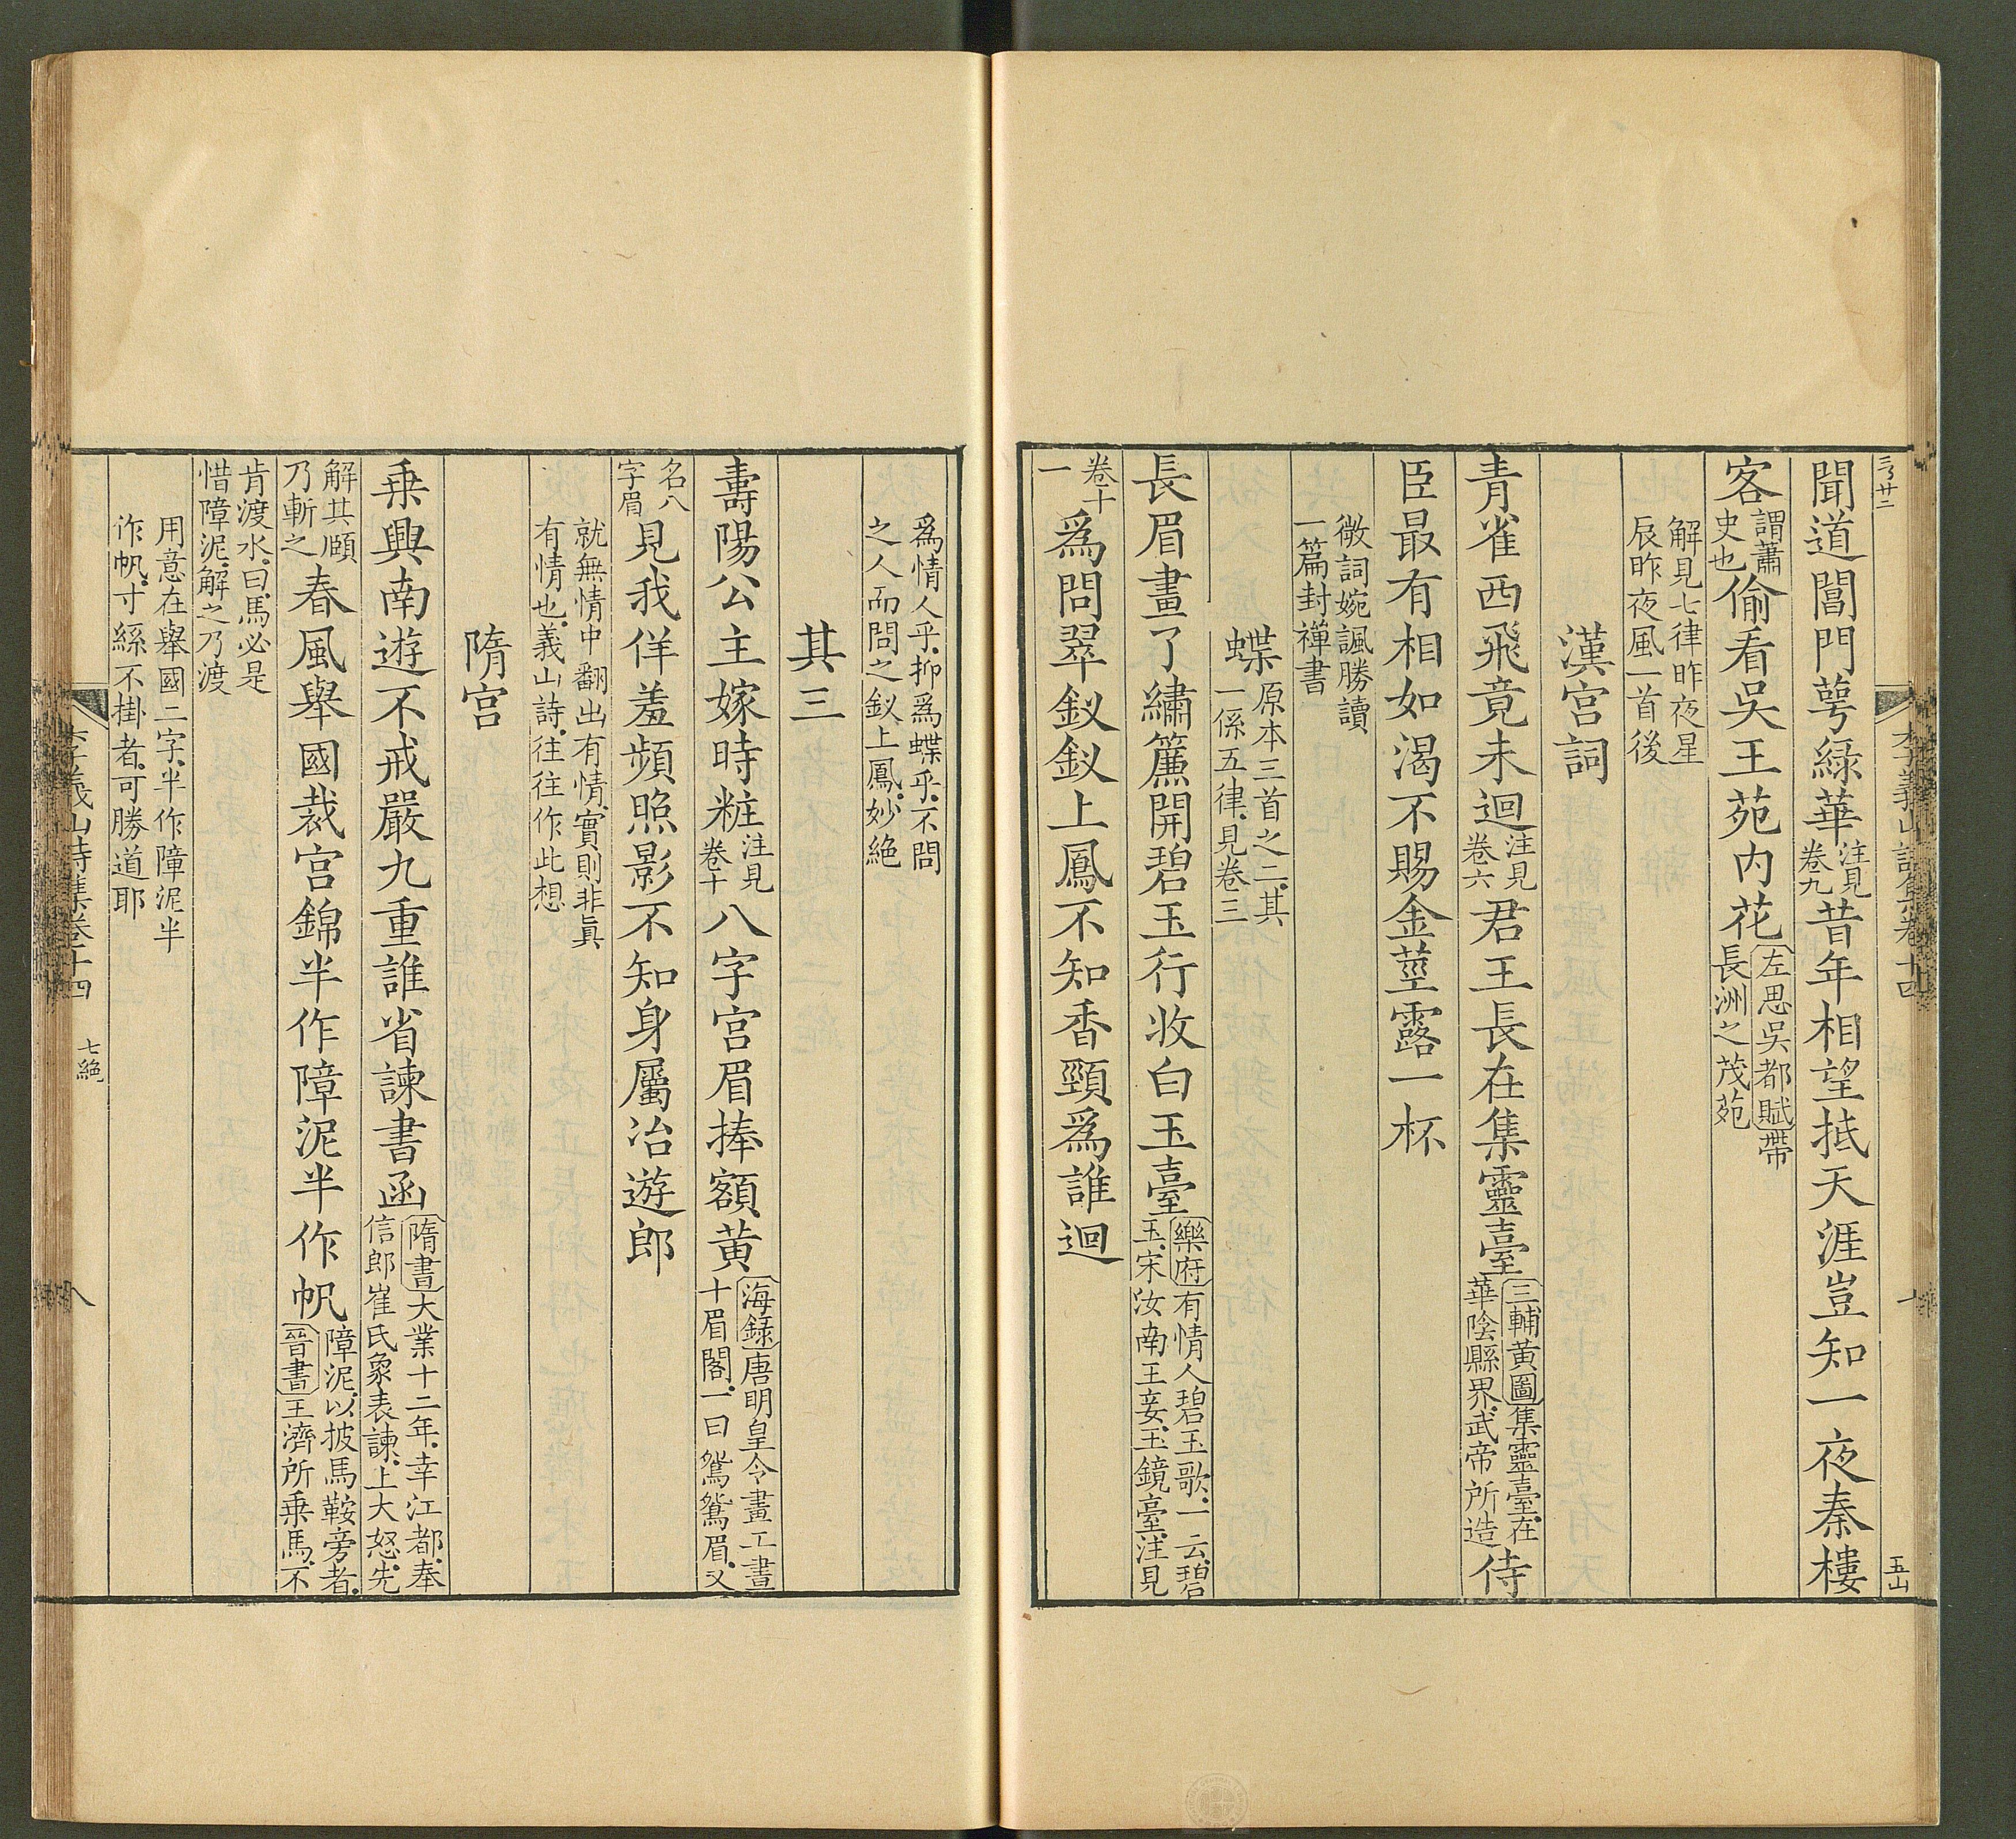 聞道閶門萼綠華注見卷九昔年相望抵天涯豈知一夜秦樓
客謂蕭史也偷看吳王苑內花左思吳都賦帶長洲之茂苑
解見七律昨夜星
辰昨夜風一首後
漢宮詞
青雀西飛竟未迴注見卷六君王長在集靈臺三輔黃圖集靈臺在華陰縣界武帝所造侍
臣最有相如渴不賜金莖露一杯
微詞婉諷勝讀
一篇封禪書
蝶原本三首之二其一係五律見卷三
長眉畫了繡簾開碧玉行收白玉臺樂府有情人碧玉歌一云碧玉宋汝南王妾玉鏡臺注見
卷十一為問翠釵釵上鳳不知香頸為誰迴
為情人乎抑為蝶乎不問
之人而問之釵上鳳妙絕
其三
壽陽公主嫁時粧注見卷十八字宮眉捧額黃海錄唐明皇令畫工畫十眉閣一曰鴛鴦眉又
名八字眉見我佯羞頻照影不知身屬冶遊郎
就無情中翻出有情實則非真
有情也義山詩往往作此想
隋宮
乗興南遊不戒嚴九重誰省諫書函隋書大業十二年幸江都奉信郎崔氏象表諫上大怒先
解其頤乃斬之春風舉國裁宮錦半作障泥半作帆障泥以披馬鞍旁者晉書王濟所乗馬不
肯渡水曰馬必是
惜障泥解之乃渡
用意在舉國二字半作障泥半
作帆寸絲不掛者可勝道耶
李義山詩集卷十四
七絕
八